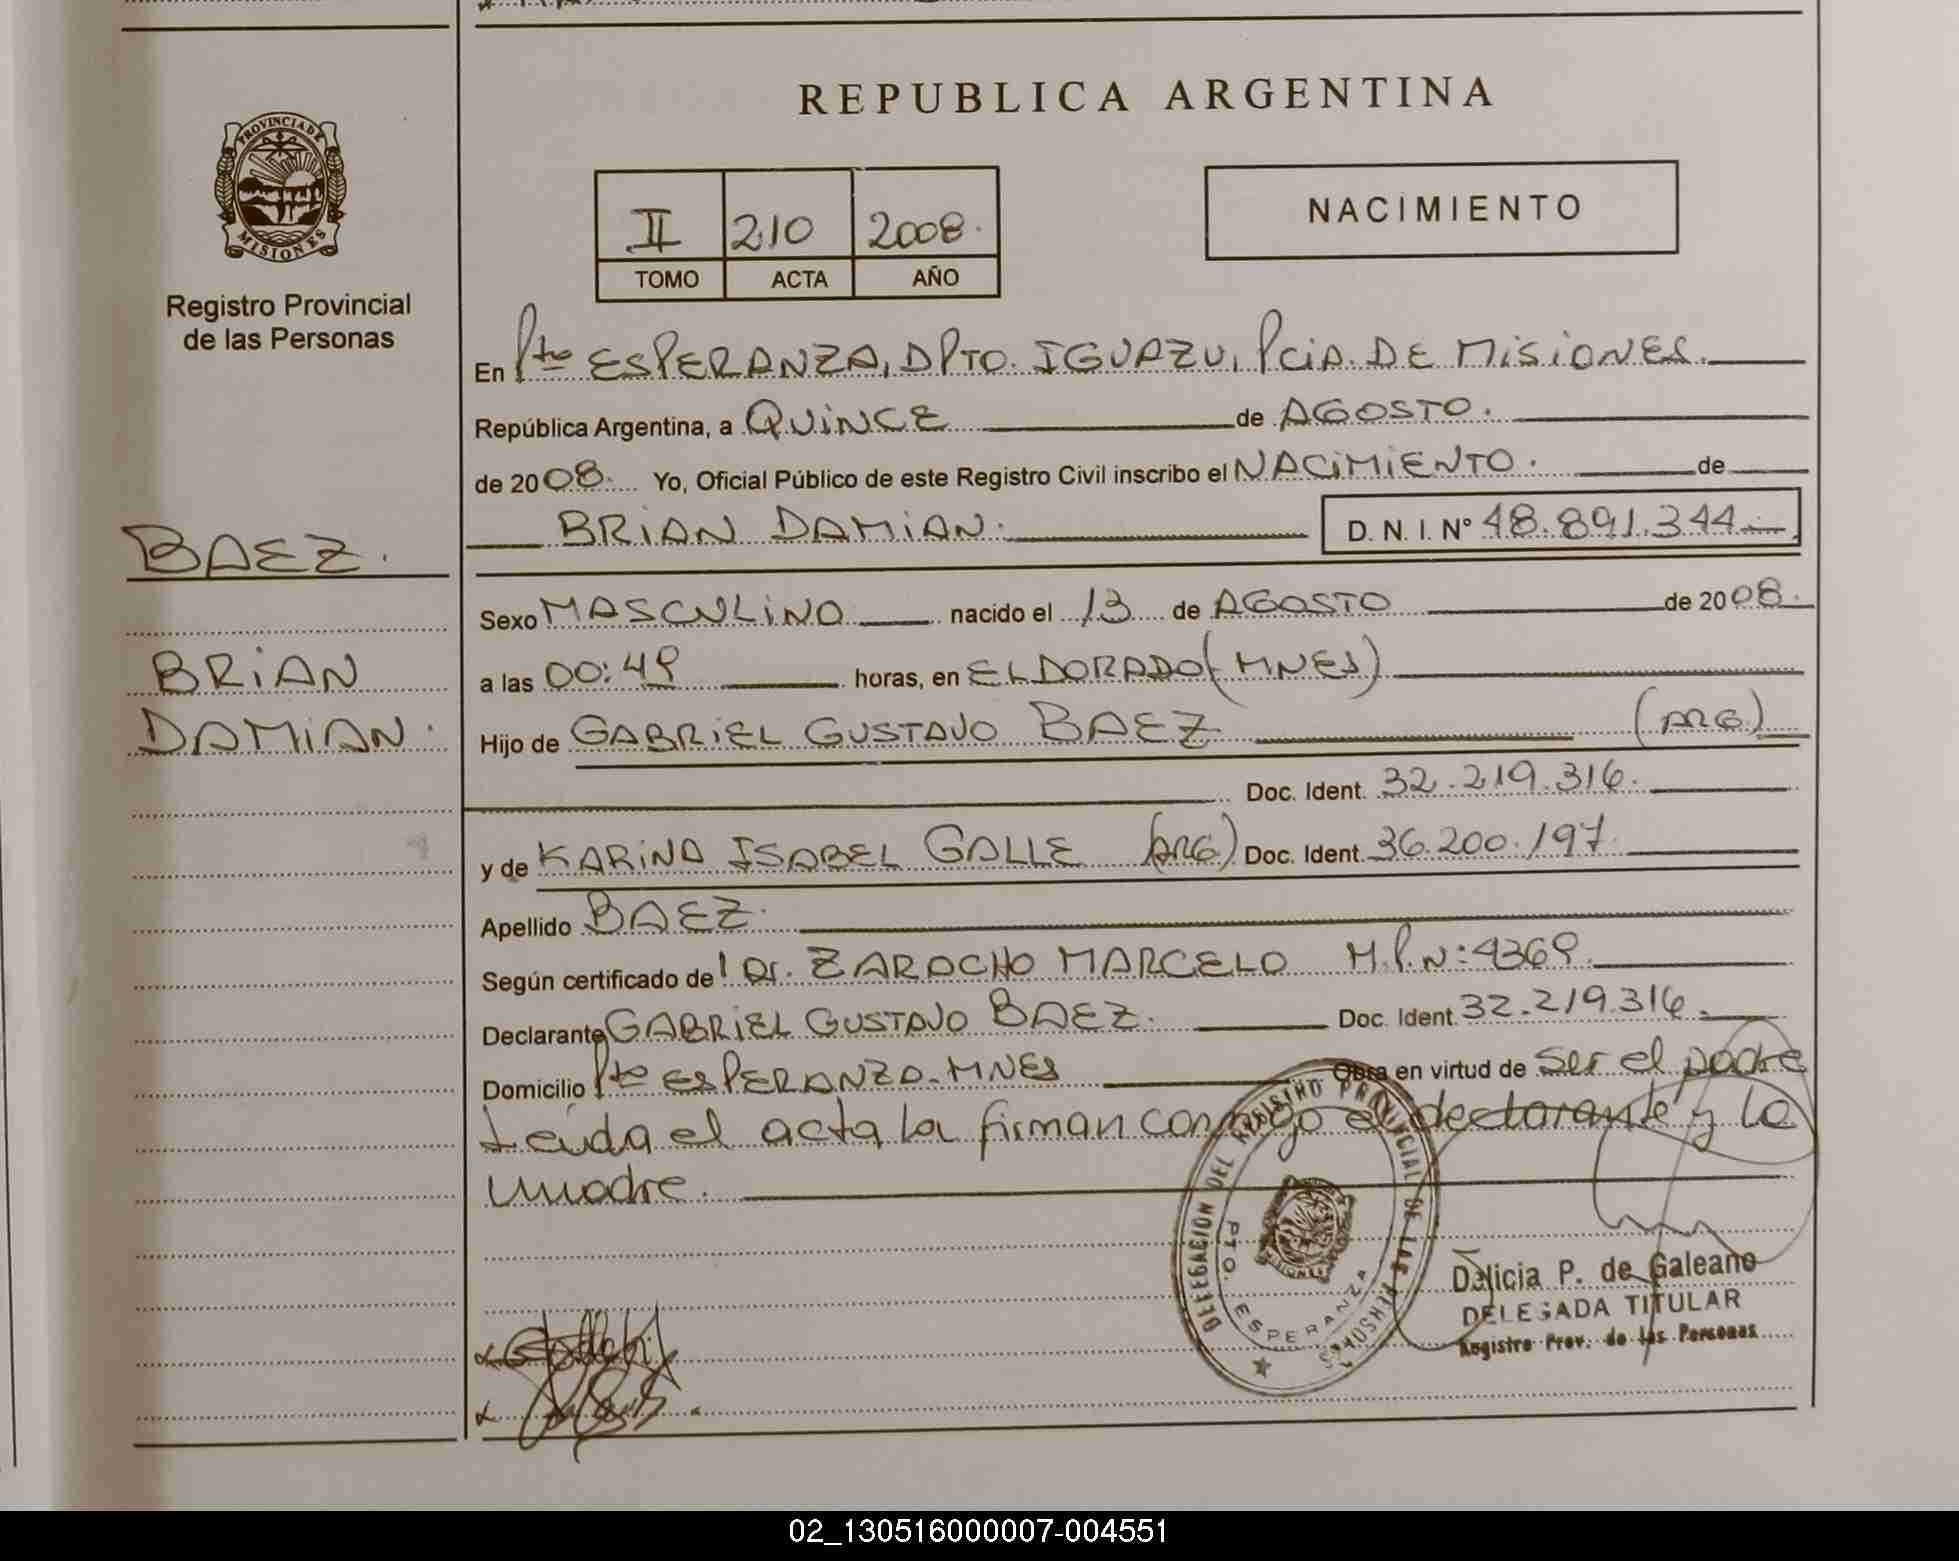 REPUBLICA ARGENTINA
PROVINCIA DE
MISIONES
Registro Provincial
de las Personas
II 210 2008
TOMO ACTA AÑO
NACIMIENTO
En Pto ESPERANZA, DPTO. IGUAZU, PCIA. DE MISIONES.
República Argentina, a QUINCE de AGOSTO.
de 2008. Yo, Oficial Público de este Registro Civil inscribo el NACIMIENTO. de
BRIAN DAMIAN. D. N. I. N° 48.891.344
BAEZ.
BRIAN
DAMIAN.
Sexo MASCULINO nacido el 13 de AGOSTO de 2008.
a las 00:49 horas, en ELDORADO (MNES)
Hijo de GABRIEL GUSTAVO BAEZ (ARG.)
Doc. Ident. 32.219.316.
y de KARINA ISABEL GALLE (ARG) Doc. Ident. 36.200.197.
Apellido BAEZ.
Según certificado de l Dr. ZAROCHO MARCELO M.P.N: 4369.
Declarante GABRIEL GUSTAVO BAEZ. Doc. Ident. 32.219.316.
Domicilio Pto ESPERANZA-MNES Obra en virtud de ser el padre
Leida el acta la firman conmigo el declarante y la
madre.
DELEGACION DEL REGISTRO PROVINCIAL DE LAS PERSONAS
PTO. ESPERANZA
Delicia P. de Galeano
DELEGADA TITULAR
Registro Prov. de las Personas
02_130516000007-004551